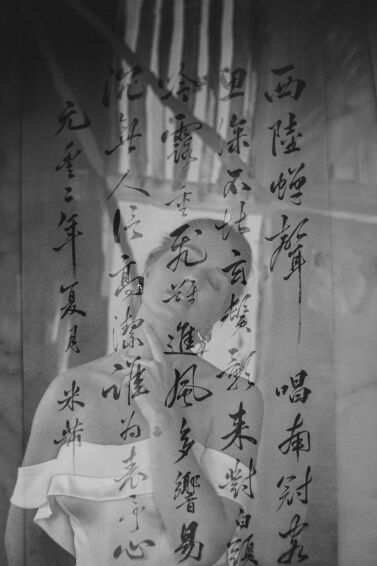 西陸蟬聲唱南冠客
思深不堪玄鬢影來對白頭
吟露重飛難進風多響易
沉無人信高潔誰為表予心
元豐二年夏月米芾